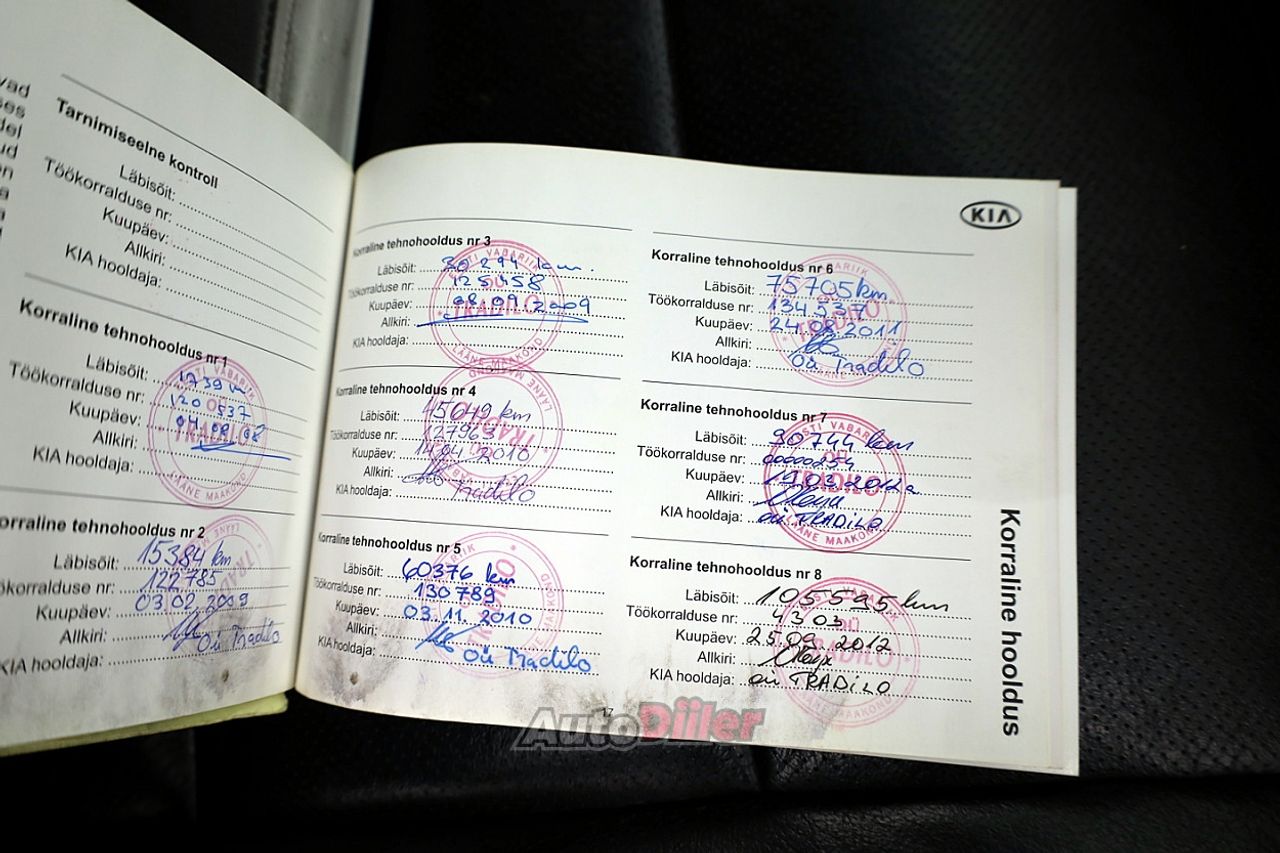 vad
ses
del
ud
Tarnimiseelne kontroll
Läbisõit:
Töökorralduse nr:
Kuupäev:
Allkiri:
KIA hooldaja:
Korraline tehnohooldus nr 1
Läbisõit: 1739
Töökorralduse nr: 120537
Kuupäev: 04.08.08
Allkiri:
KIA hooldaja:
EESTI VABARIIK
OÜ
TRADILO
LÄÄNE MAAKOND
Korraline tehnohooldus nr 2
Läbisõit: 15384 km
Töökorralduse nr: 122785
Kuupäev: 03.02.2009
Allkiri:
KIA hooldaja: OÜ Tradilo
KIA
Korraline tehnohooldus nr 3
Läbisõit: 30294 km.
Töökorralduse nr: 125458
Kuupäev: 08.09.2009
Allkiri:
KIA hooldaja:
EESTI VABARIIK
OÜ
TRADILO
LÄÄNE MAAKOND
Korraline tehnohooldus nr 4
Läbisõit: 45649 km
Töökorralduse nr: 127963
Kuupäev: 14.04.2010
Allkiri:
KIA hooldaja: Tradilo
LÄÄNE MAAKOND
TRADILO
Korraline tehnohooldus nr 5
Läbisõit: 60376 km
Töökorralduse nr: 130789
Kuupäev: 03.11.2010
Allkiri:
KIA hooldaja: OÜ Tradilo
Korraline tehnohooldus nr 6
Läbisõit: 75705 km
Töökorralduse nr: 134537
Kuupäev: 24.08.2011
Allkiri:
KIA hooldaja: OÜ Tradilo
Korraline tehnohooldus nr 7
Läbisõit: 90744 km
Töökorralduse nr: 00000254
Kuupäev: 19.03.2012a
Allkiri:
KIA hooldaja: OÜ TRADILO
EESTI VABARIIK
OÜ
TRADILO
LÄÄNE MAAKOND
Korraline tehnohooldus nr 8
Läbisõit: 105595 km
Töökorralduse nr: 4303
Kuupäev: 25.09.2012
Allkiri:
KIA hooldaja: OÜ TRADILO
EESTI VABARIIK
OÜ
TRADILO
LÄÄNE MAAKOND
Korraline hooldus
17
AutoDiiler